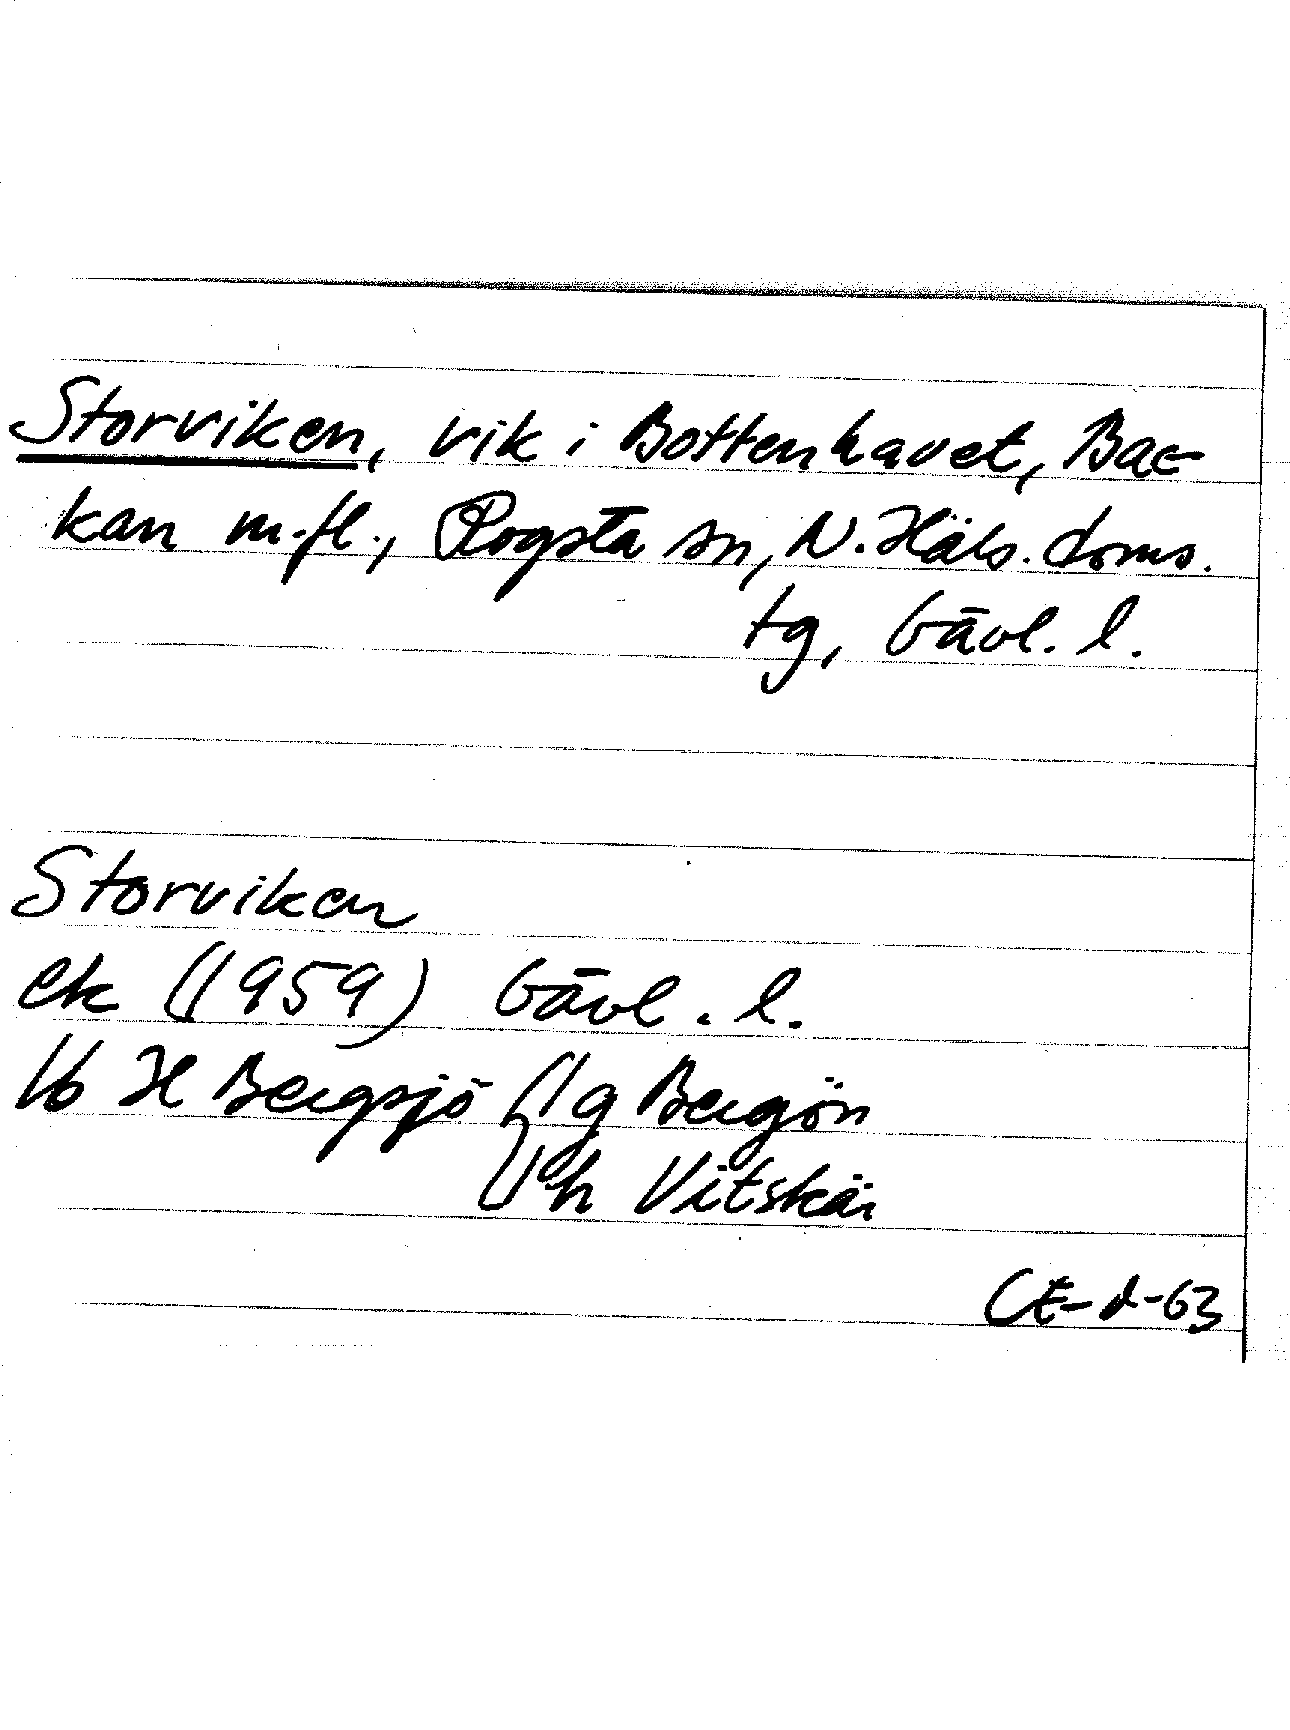 Storviken, vik i Bottenhavet, Bac-
kan m.fl., Rogsta sn, N. Häls. doms.
tg, Gävl. l.
Storviken
ek (1959) Gävl. l.
16 H Bergsjö 1g Bergön
1h Vitskär
CE-d-63